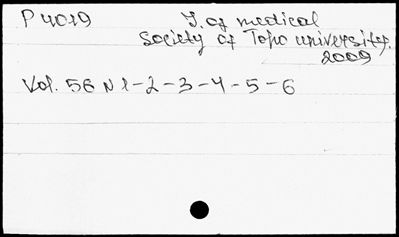 P 4019 J. of medical
Society of Toho university.
2009
Vol. 56 N 1-2-3-4-5-6